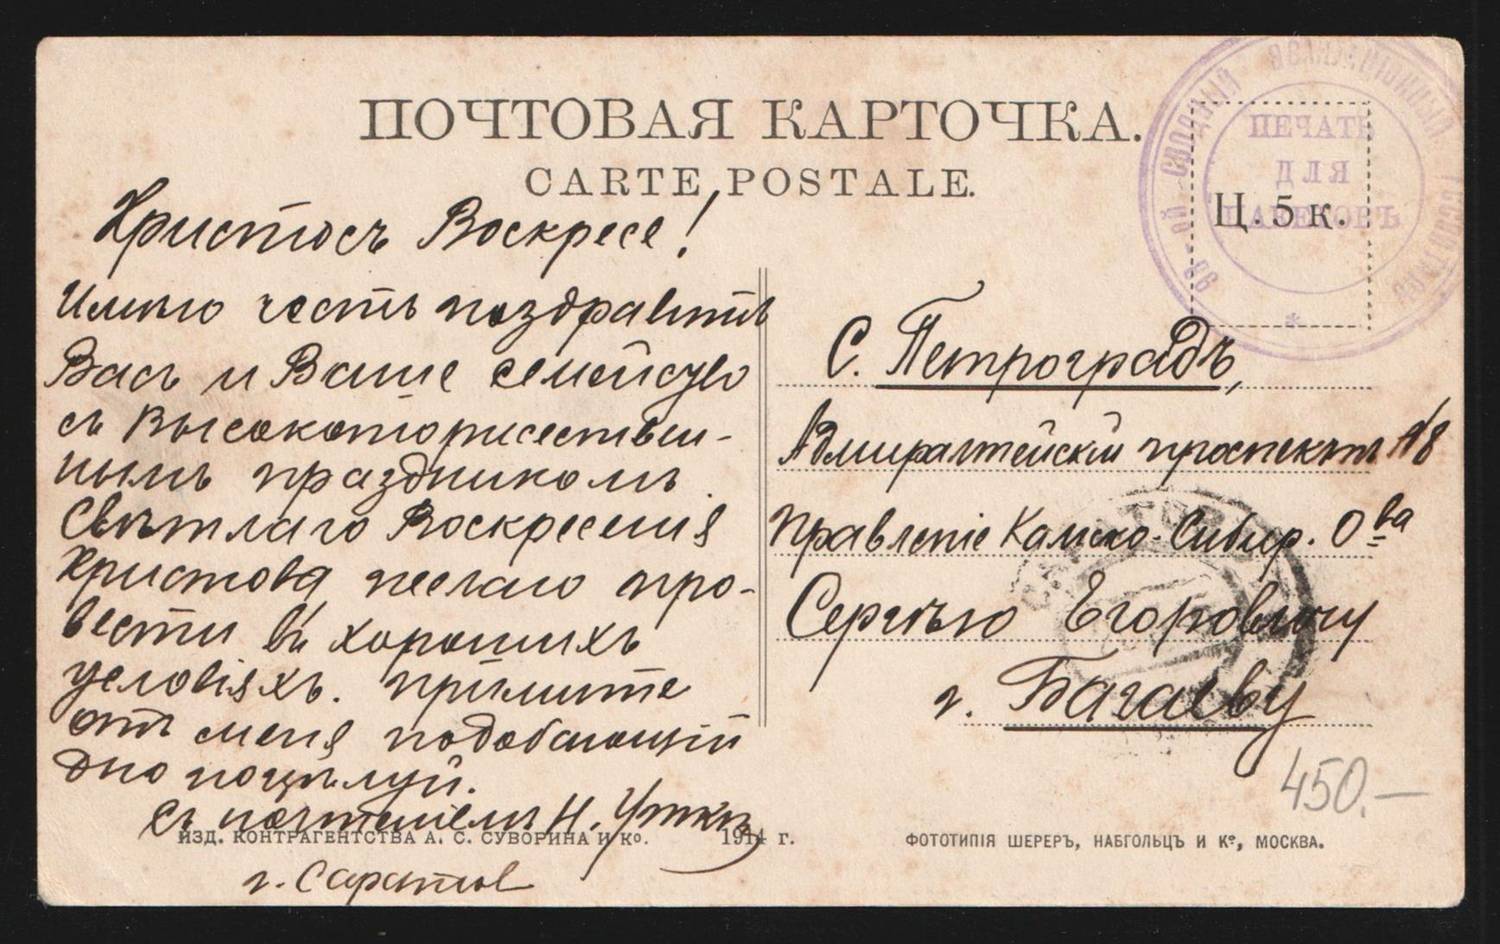 ПОЧТОВАЯ КАРТОЧКА.
CARTE POSTALE.
СВОДНЫЙ ЭВАКУАЦІОННЫЙ ГОСПИТАЛЬ
ПЕЧАТЬ
ДЛЯ
ПАКЕТОВЪ
*
Ц. 5 к.
Христосъ Воскресе!
Имѣю честь поздравить
Васъ и Ваше семейсво
съ Высокоторжествен-
нымъ праздникомъ
Свѣтлаго Воскресенія
Христова желаю про-
вести въ хорошихъ
условіяхъ. примите
отъ меня подобающій
дню поцѣлуй.
Съ почтеніемъ Н. Уткин
г. Саратов
С. Петроградъ,
Адмиралтейскій проспектъ №8
Правленіе Камско-Сибир. О-ва
Сергѣю Егоровичу
г. Багаеву
450.—
ИЗД. КОНТРАГЕНТСТВА А. С. СУВОРИНА И Ко. 1914 г.
ФОТОТИПІЯ ШЕРЕРЪ, НАБГОЛЬЦЪ И Ко, МОСКВА.